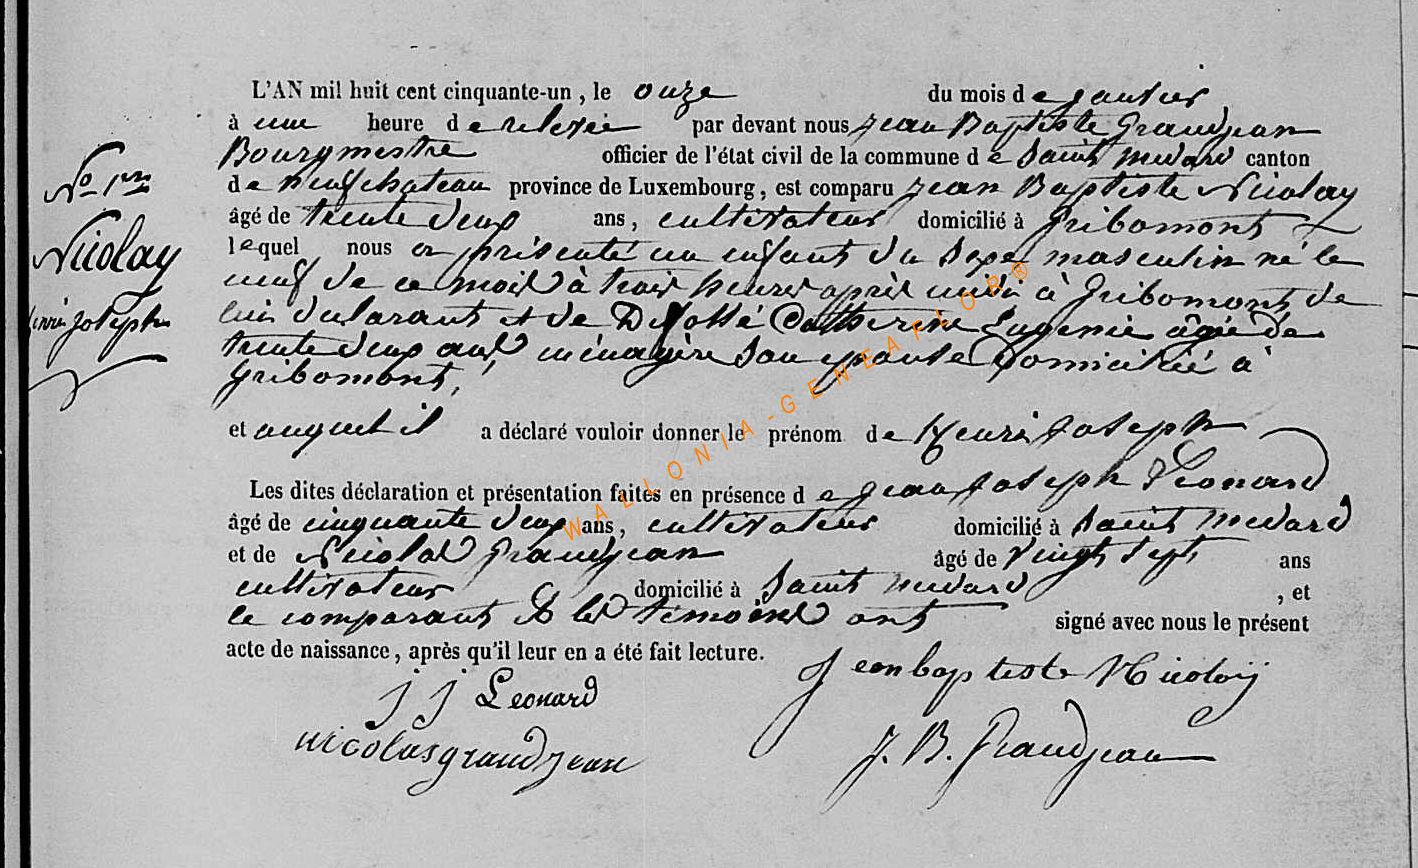 L'AN mil huit cent cinquante-un, le onze du mois de janvier
à une heure de relevée par devant nous Jean Baptiste Grandjean
Bourgmestre officier de l'état civil de la commune de Saint Medard canton
de neufchateau province de Luxembourg, est comparu Jean Baptiste Nicolay
âgé de trente deux ans, cultivateur domicilié à Gribomont
lequel nous a présenté un enfant du sexe masculin né le
neuf de ce mois à trois heures après midi à Gribomont de
lui declarant et de Catherine Eugenie âgée de
trente deux ans ménagère son epouse domiciliée à
Gribomont,
et auquel il a déclaré vouloir donner le prénom de Henri Joseph
Les dites déclaration et présentation faites en présence de Jean Joseph Leonard
âgé de cinquante deux ans, cultivateur domicilié à Saint Medard
et de Nicolas Grandjean âgé de vingt sept ans
cultivateur domicilié à Saint Medard, et
le comparant & les témoins ont signé avec nous le présent
acte de naissance, après qu'il leur en a été fait lecture.
No 1er
Nicolay
henri joseph
j j Leonard
Jean baptiste Nicolay
nicolas grandjean
J. B. Grandjean
WALLONIA-GENEAFLOR®